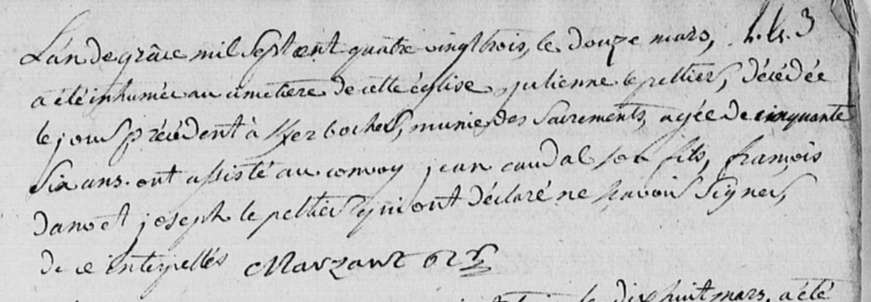 L'an de grâce mil Sept cent quatre vingt trois, le douze mars, 3
a été inhumée au cimetiere de cette église julienne le peltier, décédée
le jour précédent à munie des Sacrements, agée de cinquante
Six ans. ont assisté au convoy jean caudal son fils, françois
danet joseph le peltier qui ont déclaré ne Savoir Signer,
de ce interpellés Marzant
dix huit mars, a été